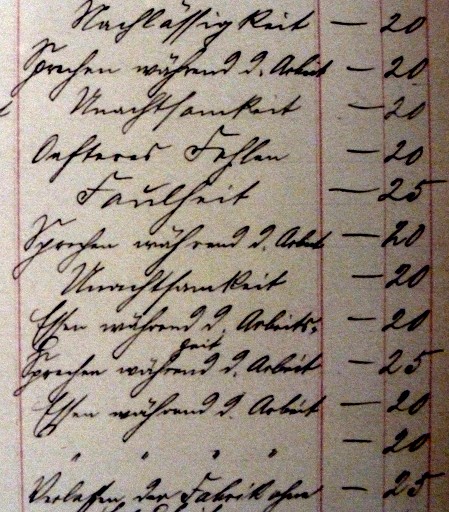 Nachlässigkeit — 20
Sprechen während d. Arbeit — 20
Unachtsamkeit — 20
Oefteres Fehlen — 20
Faulheit — 25
Sprechen während d. Arbeit — 20
Unachtsamkeit — 20
Essen während d. Arbeits- — 20
zeit
Sprechen während d. Arbeit — 25
Essen während d. Arbeit — 20
" " " " — 20
Verlassen der Fabrik ohne — 25